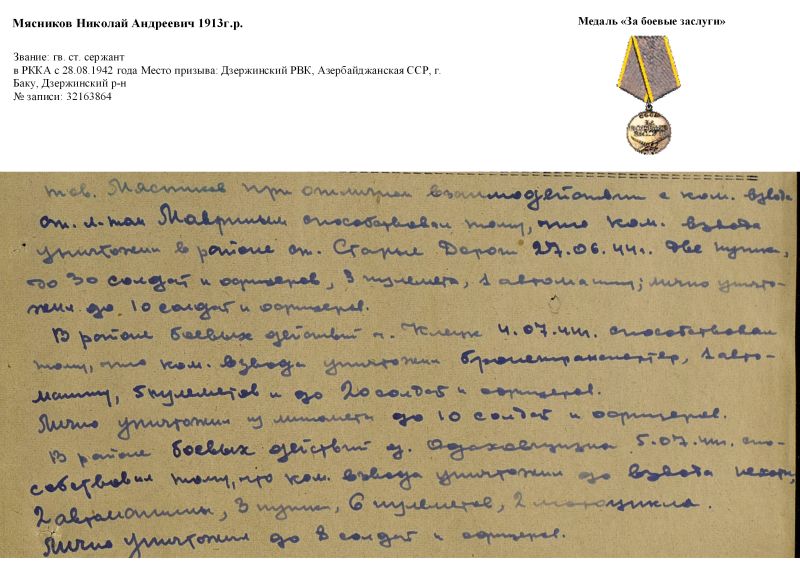 Мясников Николай Андреевич 1913г.р.
Медаль «За боевые заслуги»
Звание: гв. ст. сержант
в РККА с 28.08.1942 года Место призыва: Дзержинский РВК, Азербайджанская ССР, г.
Баку, Дзержинский р-н
№ записи: 32163864
тов. Мясников при отличном взаимодействии с ком. взвода
ст. л-том Мавриным способствовал тому, что ком. взвода
уничтожил в районе ст. Старые Дороги 27.06.44г. две пушки,
до 30 солдат и офицеров, 3 пулемета, 1 автомашину; лично уничто-
жил до 10 солдат и офицеров.
В районе боевых действий г. Клецк 4.07.44г. способствовал
тому, что ком. взвода уничтожил бронетранспортер, 1 авто-
машину, 5 пулеметов и до 20 солдат и офицеров.
Лично уничтожил из миномета до 10 солдат и офицеров.
В районе боевых действий д. 5.07.44г. спо-
собствовал тому, что ком. взвода уничтожил до взвода пехоты,
2 автомашины, 3 пушки, 6 пулеметов, 2 мотоцикла.
Лично уничтожил до 8 солдат и офицеров.